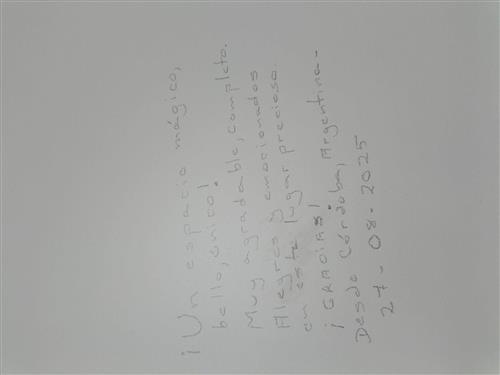 ¡Un espacio mágico,
bello, único!
Muy agradable, completo.
Alegres y emocionados
en este lugar precioso.
¡GRACIAS!
Desde Córdoba, Argentina-
27-08-2025